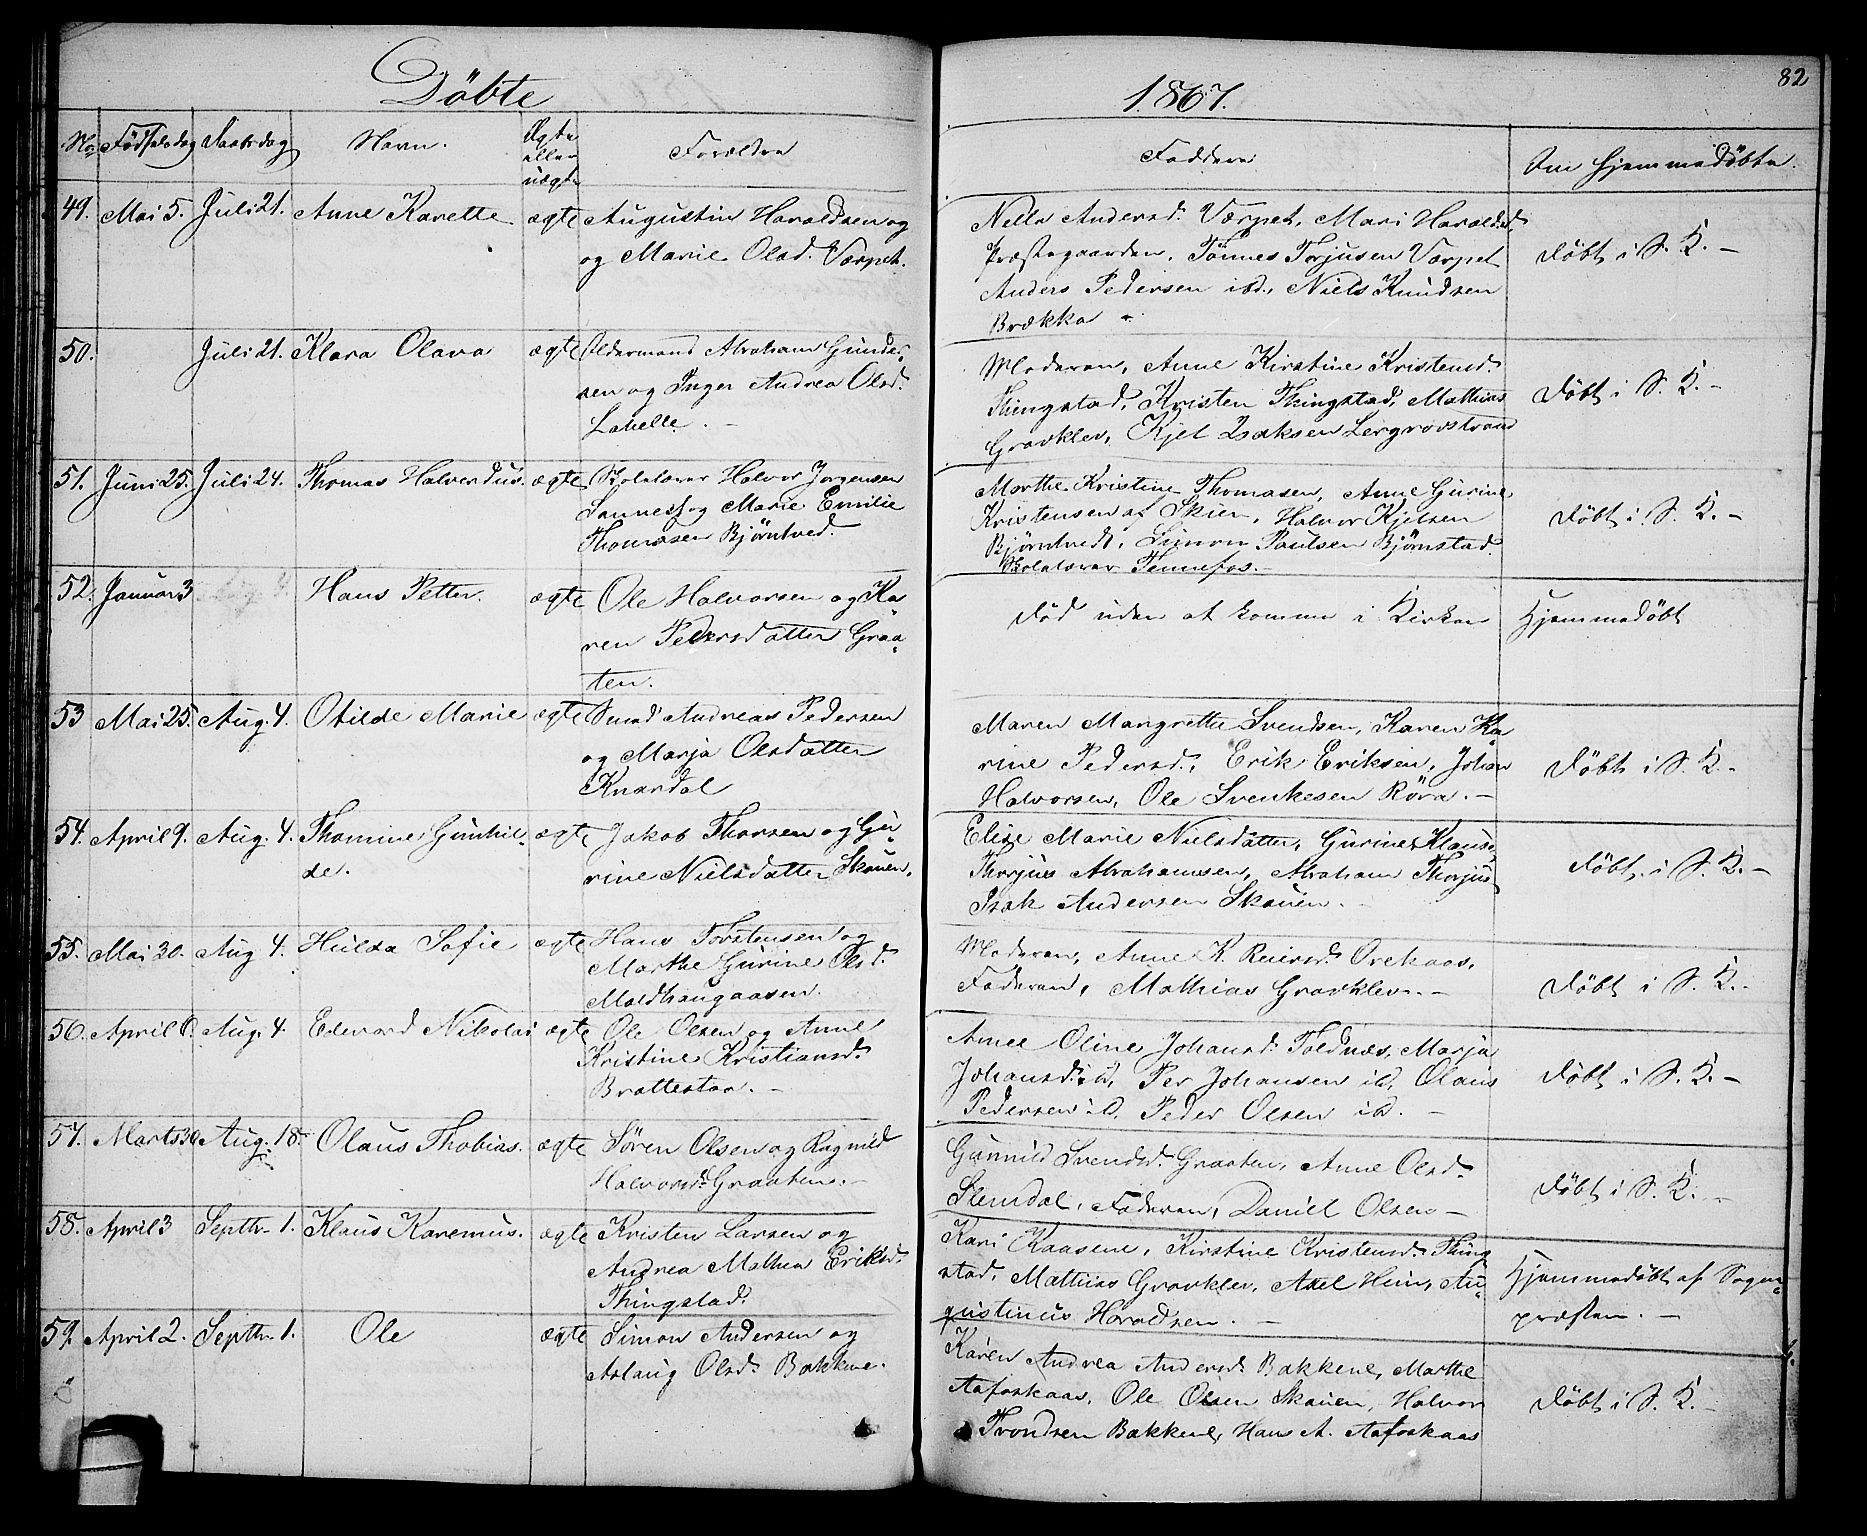 Döbte
1867.
82
No Födselsdag Daabsdag Navn. Ægte eller uægte Forældre Faddere Om hjemmedöbte.
49. Mai 5. Juli 21. Anne Karette ægte Augustin Haroldsen og
og Marie Olsd. Værpet.
Nella Andersd. Værpet, Mari Haraldsd.
Præstegaarden, Tönnes Torjusen Værpet
Anders Pedersen ibd., Niels Knudsen
Brækka
Döbt i S. K. -
50. Juli 21. Klara Olava ægte Oldermand Abraham Gunder-
sen og Inger Andrea Olsd.
Labelle. -
Moderen, Anne Kirstine Kristensd.
Thingstad, Kristen Thingstad, Mathias
Gravklev, Kjel Isaksen Lergrovstrand
Döbt i S. K. -
51. Juni 25. Juli 24. Thomas Halvordus. ægte Skolelærer Halvor Jorgensen
Sannes og Marie Emilie
Thomasen Björntved.
Marthe Kristine Thomasen, Anne Gurine
Kristensen af Skien, Halvor Kjelsen
Björntvedt, Simon Paulsen Björnstad.
Skolelærer Tennefos. -
Döbt i S. K. -
52. Januar 3 Hans Petter. ægte Ole Halvorsen og Ka-
ren Pedersdatter Graa-
ten.
Död uden at komme i Kirken
Hjemmedöbt
53 Mai 25. Aug. 4. Otilde Marie ægte Smed Andreas Pedersen
og Marja Olsdatter
Knardal
Maren Margrethe Svendsen, Karen Ka-
rine Pedersd., Erik Eriksen, Johan
Halvorsen, Ole Svenkesen Röra. -
Döbt i S. K. -
54. April 9. Aug. 4. Thomine Gunhil-
de.
ægte Jakob Thorsen og Gu-
rine Nielsdatter Skauen.
Elise Marie Nielsdatter, Gurine Klausd.
Thorjus Abrahamsen, Abraham Thorjus-
Isak Andersen Skauen. -
Döbt i S. K. -
55. Mai 30. Aug 4. Hulda Sofie ægte Hans Torstensen og
Marthe Gurine Olsd.
Moldhaugaasen.
Moderen, Anne K. Reiersd. Orekaas,
Faderen, Mathias Gravklev. -
Döbt i S. K. -
56. April 6. Aug. 4 Edevard Nikolai ægte Ole Olsen og Anne
Kristine Kristiansd.
Brattestaa. -
Anne Oline Johansd. Toldnæs, Marja
Johansd. ibd, Per Johansen ibd, Olaus
Pedersen ibd. Peder Olsen ibd. -
Döbt i S. K. -
57. Marts 30 Aug. 18. Olaus Thobias. ægte Sören Olsen og Ragnild
Halvorsd. Graaten. -
Gunnild Svendsd. Graaten, Anne Olsd.
Slemdal, Faderen, Daniel Olsen -
Döbt i S. K. -
58. April 3 Septbr. 1. Klaus Karenius. ægte Kristen Larsen og
Andrea Mathea Eriksd.
Thingstad.
Kari Kaasene, Kirstine Kristensd. Thing-
stad, Mathias Gravklev, Axel Hein, Au-
gustinus Haroldsen. -
Hjemmedöbt af Sogne-
præsten. -
59 April 2. Septbr. 1. Ole ægte Simon Andersen og
Aslaug Olsd. Bakkene.
Karen Andrea Andersd. Bakkene, Marthe
Aafoskaas, Ole Olsen Skauen, Halvor
Trondsen Bakkene, Hans A. Aafoskaas
Döbt i S. K. -